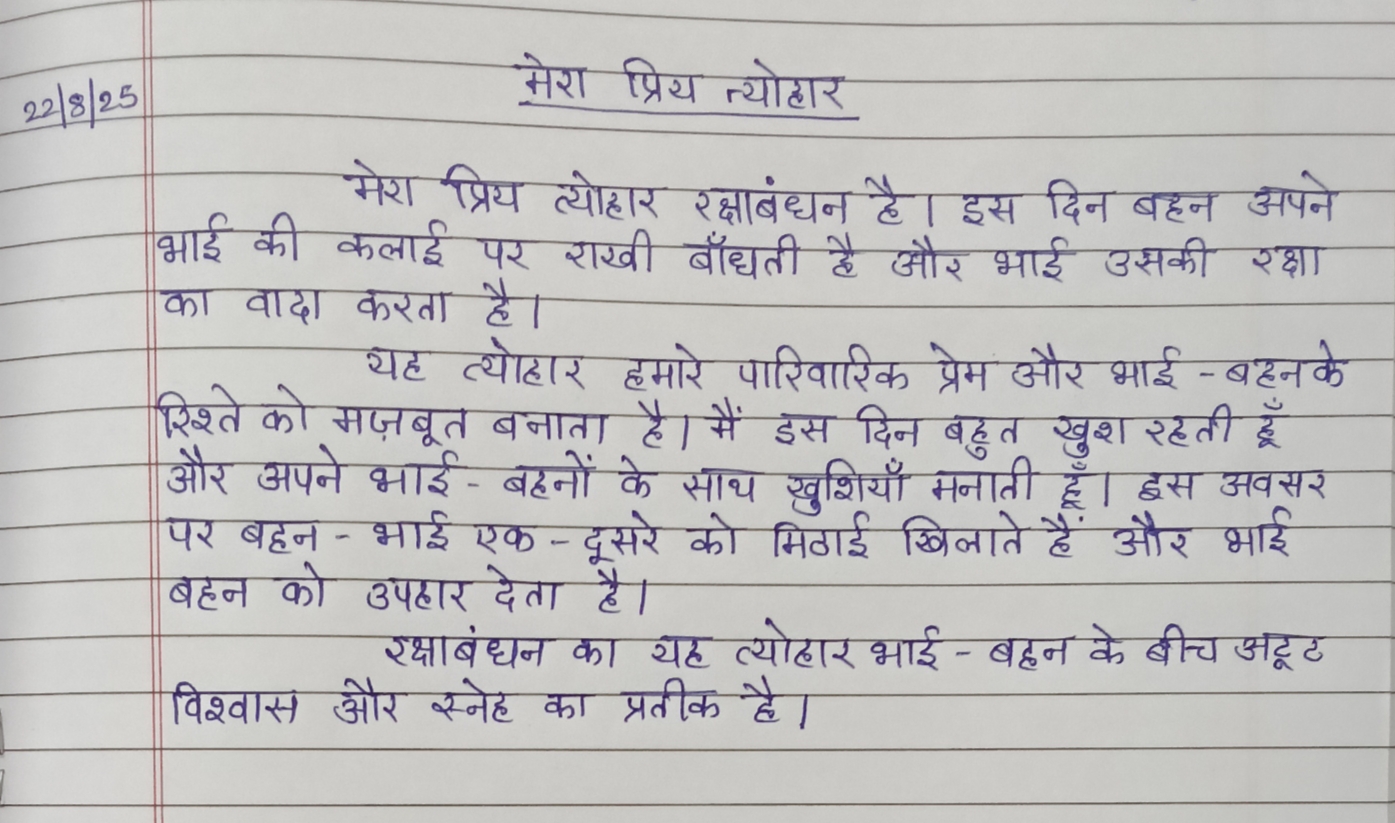 मेरा प्रिय त्योहार
22/8/25
मेरा प्रिय त्योहार रक्षाबंधन है। इस दिन बहन अपने
भाई की कलाई पर राखी बाँधती है और भाई उसकी रक्षा
का वादा करता है।
यह त्योहार हमारे पारिवारिक प्रेम और भाई - बहन के
रिश्ते को मज़बूत बनाता है। मैं इस दिन बहुत खुश रहती हूँ
और अपने भाई - बहनों के साथ खुशियाँ मनाती हूँ। इस अवसर
पर बहन - भाई एक - दूसरे को मिठाई खिलाते हैं और भाई
बहन को उपहार देता है।
रक्षाबंधन का यह त्योहार भाई - बहन के बीच अटूट
विश्वास और स्नेह का प्रतीक है।